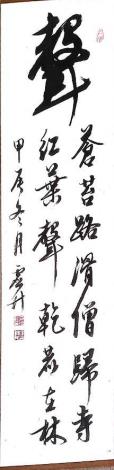 聲
蒼苔路滑僧歸寺
紅葉聲乾鹿在林
甲辰冬月